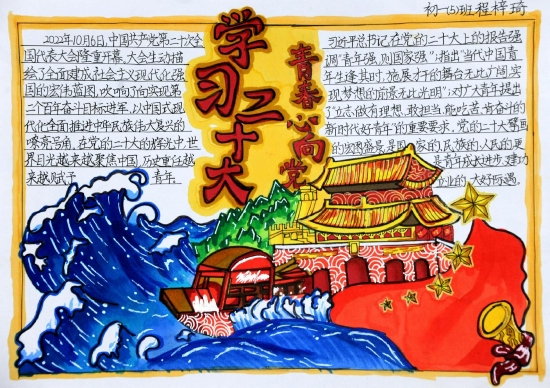 初一(5)班程梓琦
学习二十大
青春心向党
2022年10月6日,中国共产党第二十次全
国代表大会隆重开幕,大会生动描
绘了全面建成社会主义现代化强
国的宏伟蓝图,吹响了向实现第
二个百年奋斗目标进军,以中国式现
代化全面推进中华民族伟大复兴的
嘹亮号角,在党的二十大的辉光中,世
界目光越来越聚焦中国,历史重任越
来越赋予 青年
习近平总书记在党的二十大上的报告强
调"青年强,则国家强","指出"当代中国青
年生逢其时,施展才干的舞台无比广阔,实
现梦想的前景无比光明",对广大青年提出
了立志做有理想、敢担当、能吃苦、肯奋斗的
新时代好青年"的重要要求,党的二十大擘画
的宏图盛景,是国家的,民族的,人民的,更
是青年成长进步,建功
业的大好际遇。